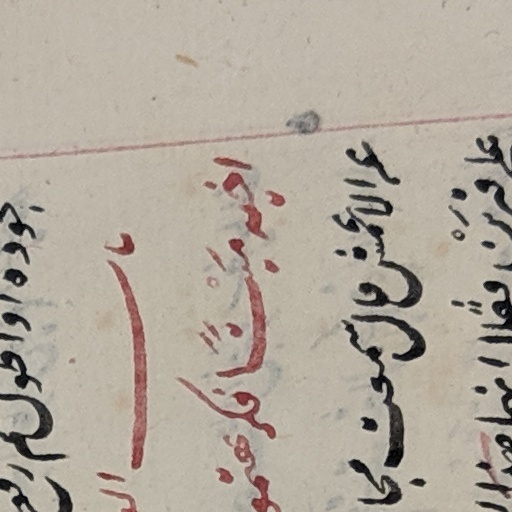 سجوده او اطول ثم رفع
باب ال
اخيه ميْتًا فكرهتمو
عن الاعمش قال سمعت مجا
على قبرَيْن فقال انهما هذا ا